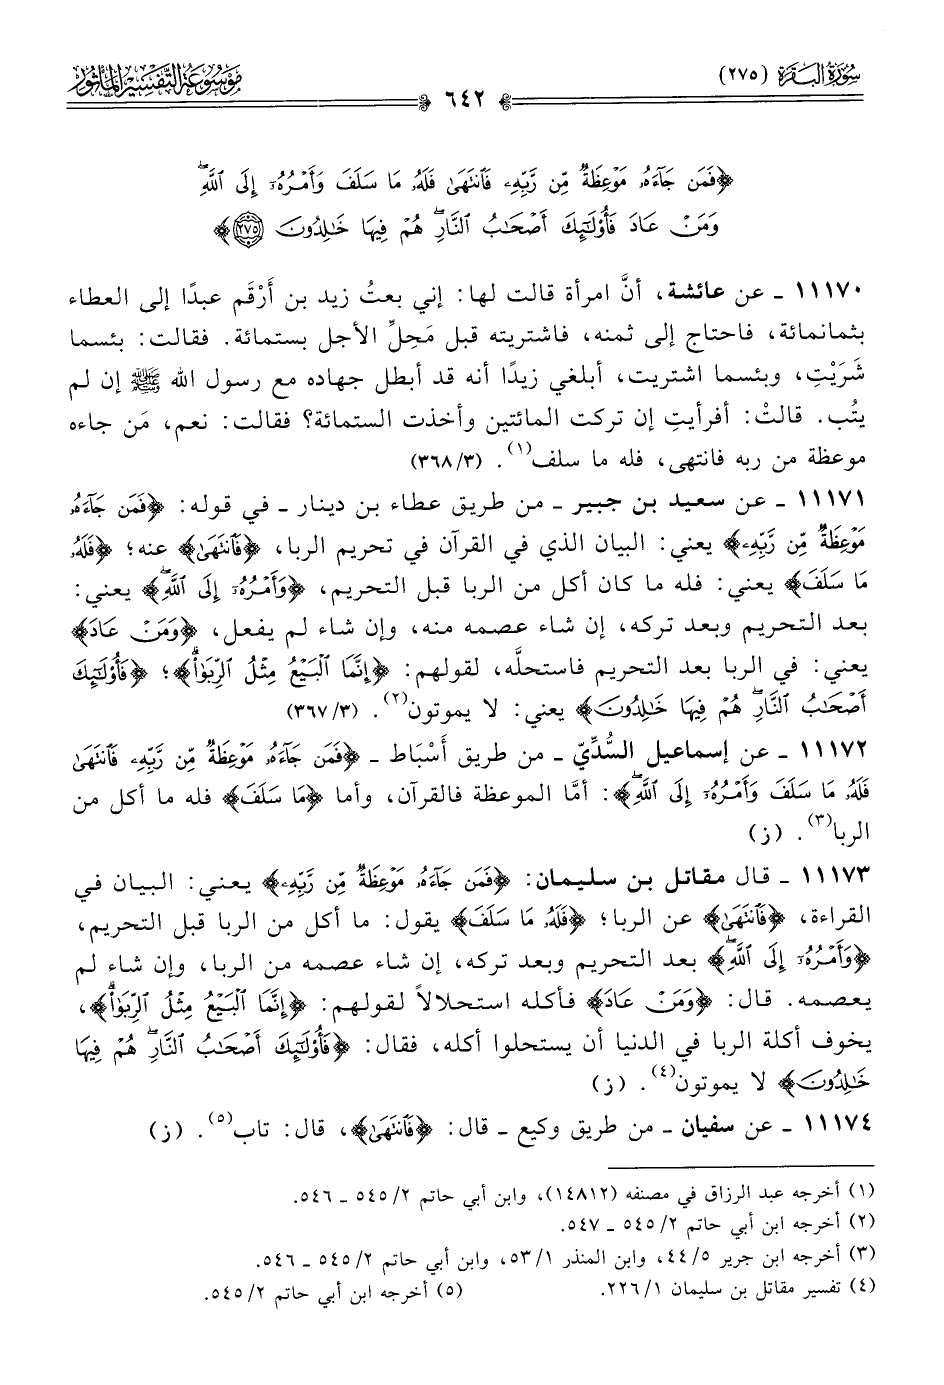 سُورَةُ البَقَرَة (٢٧٥)
مَوْسُوعَةُ التَّفْسِيرِ المَأْثُور
٦٤٢
﴿فَمَن جَآءَهُۥ مَوْعِظَةٌ مِّن رَّبِّهِۦ فَٱنتَهَىٰ فَلَهُۥ مَا سَلَفَ وَأَمْرُهُۥٓ إِلَى ٱللَّهِۖ
وَمَنْ عَادَ فَأُو۟لَٰٓئِكَ أَصْحَٰبُ ٱلنَّارِۖ هُمْ فِيهَا خَٰلِدُونَ ٢٧٥﴾
١١١٧٠ ـ عن عائشة، أنَّ امرأة قالت لها: إني بعتُ زيد بن أَرْقَم عبدًا إلى العطاء
بثمانمائة، فاحتاج إلى ثمنه، فاشتريته قبل مَحِلِّ الأجل بستمائة. فقالت: بئسما
شَرَيْتِ، وبئسما اشتريت، أبلغي زيدًا أنه قد أبطل جهاده مع رسول الله ﷺ إن لم
يتُب. قالتْ: أفرأيتِ إن تركت المائتين وأخذت الستمائة؟ فقالت: نعم، مَن جاءه
موعظة من ربه فانتهى، فله ما سلف(١). (٣٦٨/٣)
١١١٧١ ـ عن سعيد بن جبير ـ من طريق عطاء بن دينار ـ في قوله: ﴿فَمَن جَآءَهُۥ
مَوْعِظَةٌ مِّن رَّبِّهِۦ﴾ يعني: البيان الذي في القرآن في تحريم الربا، ﴿فَٱنتَهَىٰ﴾ عنه؛ ﴿فَلَهُۥ
مَا سَلَفَ﴾ يعني: فله ما كان أكل من الربا قبل التحريم، ﴿وَأَمْرُهُۥٓ إِلَى ٱللَّهِۖ﴾ يعني:
بعد التحريم وبعد تركه، إن شاء عصمه منه، وإن شاء لم يفعل، ﴿وَمَنْ عَادَ﴾
يعني: في الربا بعد التحريم فاستحلَّه، لقولهم: ﴿إِنَّمَا ٱلْبَيْعُ مِثْلُ ٱلرِّبَوٰا۟ۗ﴾؛ ﴿فَأُو۟لَٰٓئِكَ
أَصْحَٰبُ ٱلنَّارِۖ هُمْ فِيهَا خَٰلِدُونَ﴾ يعني: لا يموتون(٢). (٣٦٧/٣)
١١١٧٢ ـ عن إسماعيل السُّدِّيّ ـ من طريق أَسْبَاط ـ ﴿فَمَن جَآءَهُۥ مَوْعِظَةٌ مِّن رَّبِّهِۦ فَٱنتَهَىٰ
فَلَهُۥ مَا سَلَفَ وَأَمْرُهُۥٓ إِلَى ٱللَّهِۖ﴾: أمَّا الموعظة فالقرآن، وأما ﴿مَا سَلَفَ﴾ فله ما أكل من
الربا(٣). (ز)
١١١٧٣ ـ قال مقاتل بن سليمان: ﴿فَمَن جَآءَهُۥ مَوْعِظَةٌ مِّن رَّبِّهِۦ﴾ يعني: البيان في
القراءة، ﴿فَٱنتَهَىٰ﴾ عن الربا؛ ﴿فَلَهُۥ مَا سَلَفَ﴾ يقول: ما أكل من الربا قبل التحريم،
﴿وَأَمْرُهُۥٓ إِلَى ٱللَّهِۖ﴾ بعد التحريم وبعد تركه، إن شاء عصمه من الربا، وإن شاء لم
يعصمه. قال: ﴿وَمَنْ عَادَ﴾ فأكله استحلالاً لقولهم: ﴿إِنَّمَا ٱلْبَيْعُ مِثْلُ ٱلرِّبَوٰا۟ۗ﴾،
يخوف أكلة الربا في الدنيا أن يستحلوا أكله، فقال: ﴿فَأُو۟لَٰٓئِكَ أَصْحَٰبُ ٱلنَّارِۖ هُمْ فِيهَا
خَٰلِدُونَ﴾ لا يموتون(٤). (ز)
١١١٧٤ ـ عن سفيان ـ من طريق وكيع ـ قال: ﴿فَٱنتَهَىٰ﴾، قال: تاب(٥). (ز)
(١) أخرجه عبد الرزاق في مصنفه (١٤٨١٢)، وابن أبي حاتم ٥٤٥/٢ ـ ٥٤٦.
(٢) أخرجه ابن أبي حاتم ٥٤٥/٢ ـ ٥٤٧.
(٣) أخرجه ابن جرير ٤٤/٥، وابن المنذر ٥٣/١، وابن أبي حاتم ٥٤٥/٢ ـ ٥٤٦.
(٤) تفسير مقاتل بن سليمان ٢٢٦/١. (٥) أخرجه ابن أبي حاتم ٥٤٥/٢.